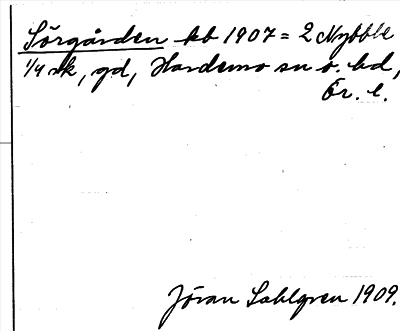 Sörgården kb 1907 = 2 Nybble
1/4 mk, gd, Hardemo sn o. hd,
Ör. l.
Jöran Sahlgren 1909.